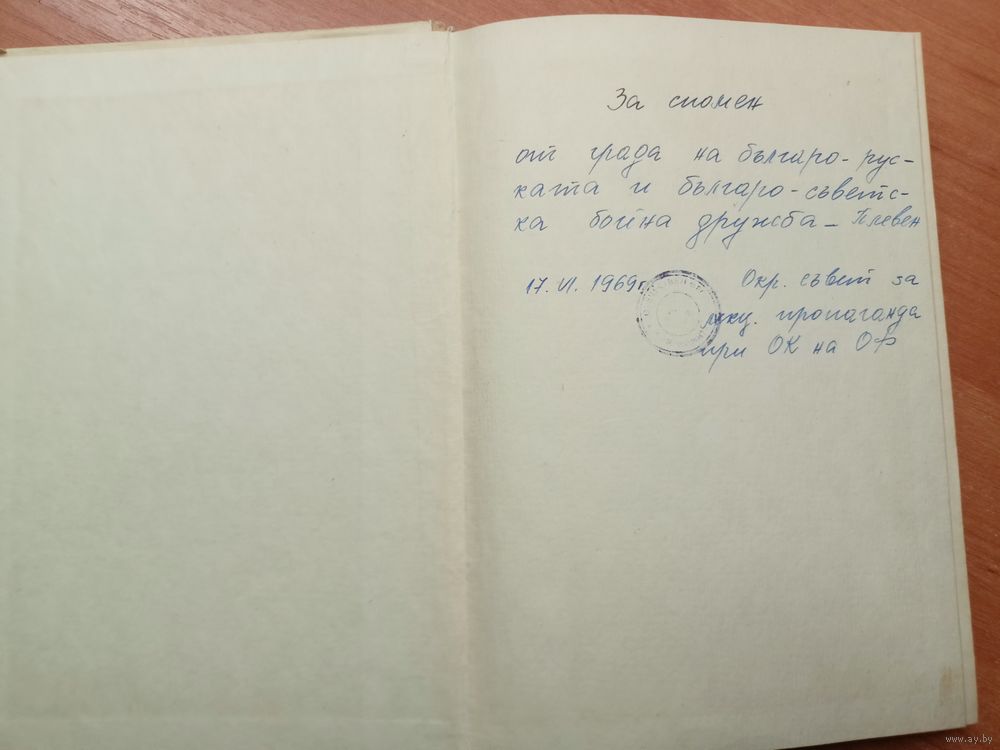 За спомен
от града на българо-рус-
ката и българо-съветс-
ка бойна дружба - Плевен
17.VI.1969г.
Окр. съвет за
лекц. пропаганда
при ОК на ОФ
www.ay.by